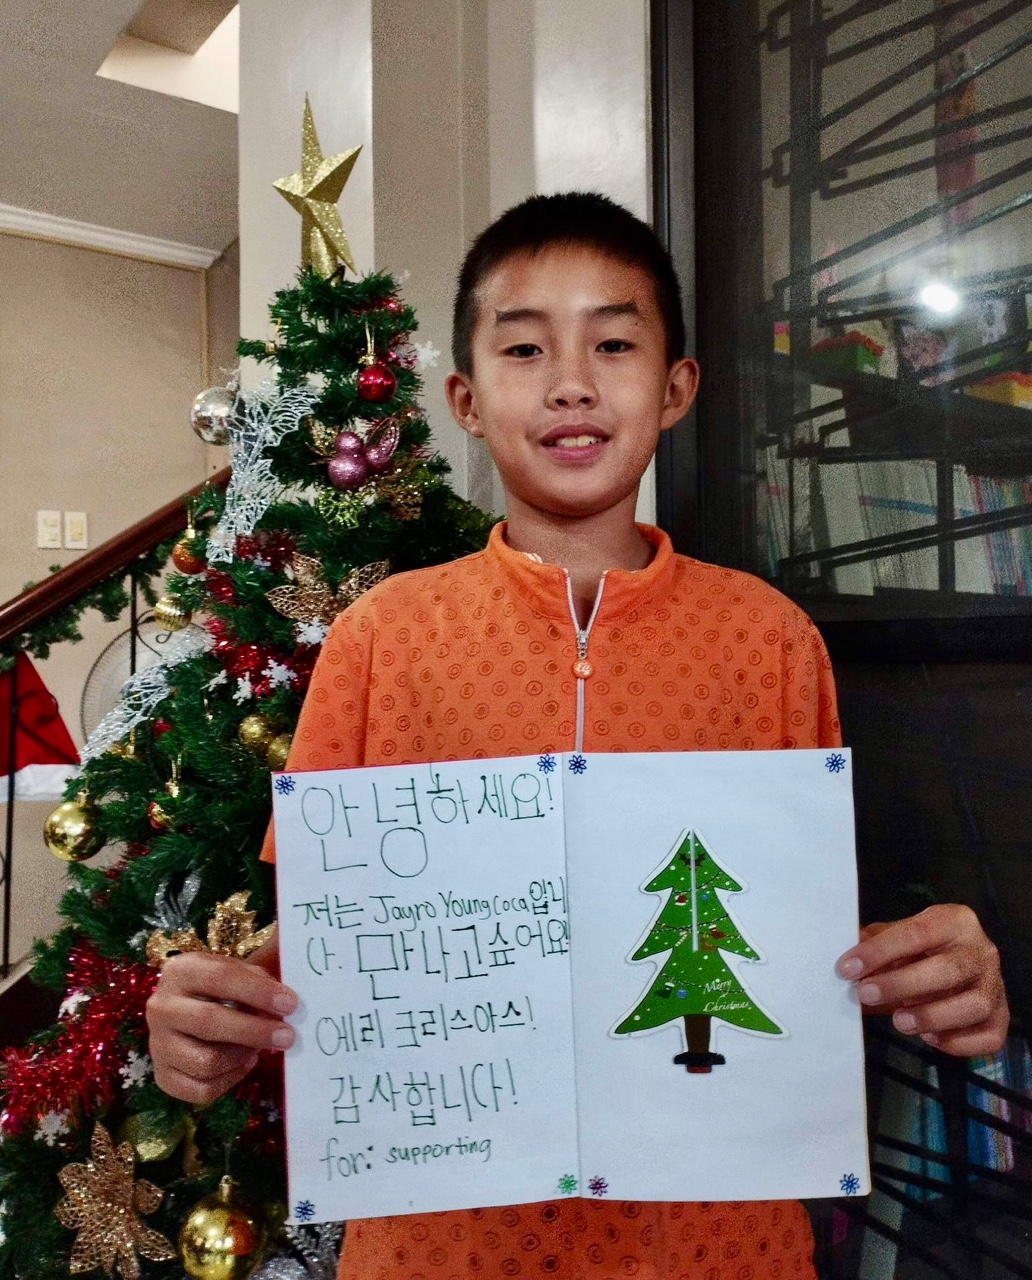 안녕하세요!
저는 Jayro Youngcoca입니
다. 만나고싶어요!
메리크리스마스!
감사합니다!
for: supporting
Merry
Christmas